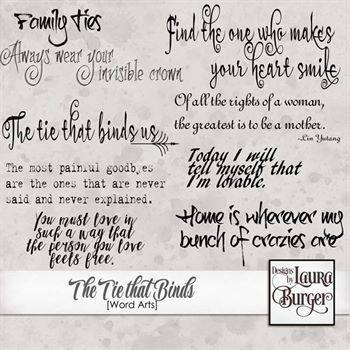 Family Ties
Always wear your
invisible crown
Find the one who makes
your heart smile
Of all the rights of a woman,
the greatest is to be a mother.
~Lin Yutang
The tie that binds us
Today I will
tell myself that
I'm lovable.
The most painful goodbyes
are the ones that are never
said and never explained.
You must love in
such a way that
the person you love
feels free.
Home is wherever my
bunch of crazies are
The Tie that Binds
[Word Arts]
Designs by
Laura
Burger